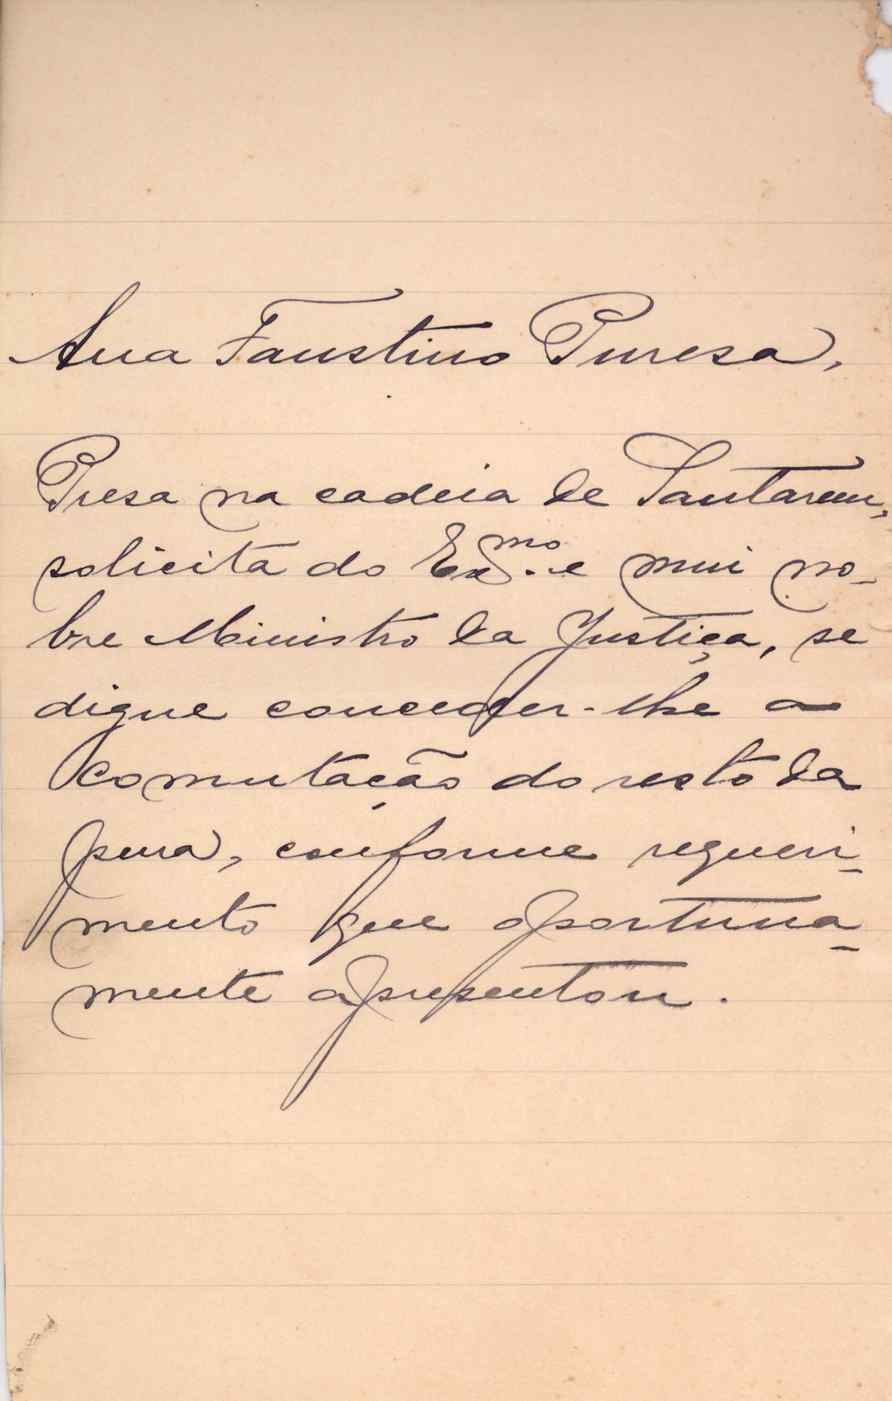 Ana Faustino Puresa,
Presa na cadeia de Santarem,
solicita do Exmo. e mui no-
bre Ministro da Justiça, se
digne conceder-lhe a
comutação do resto da
pena, conforme requeri-
mento que oportuna-
mente apresentou.